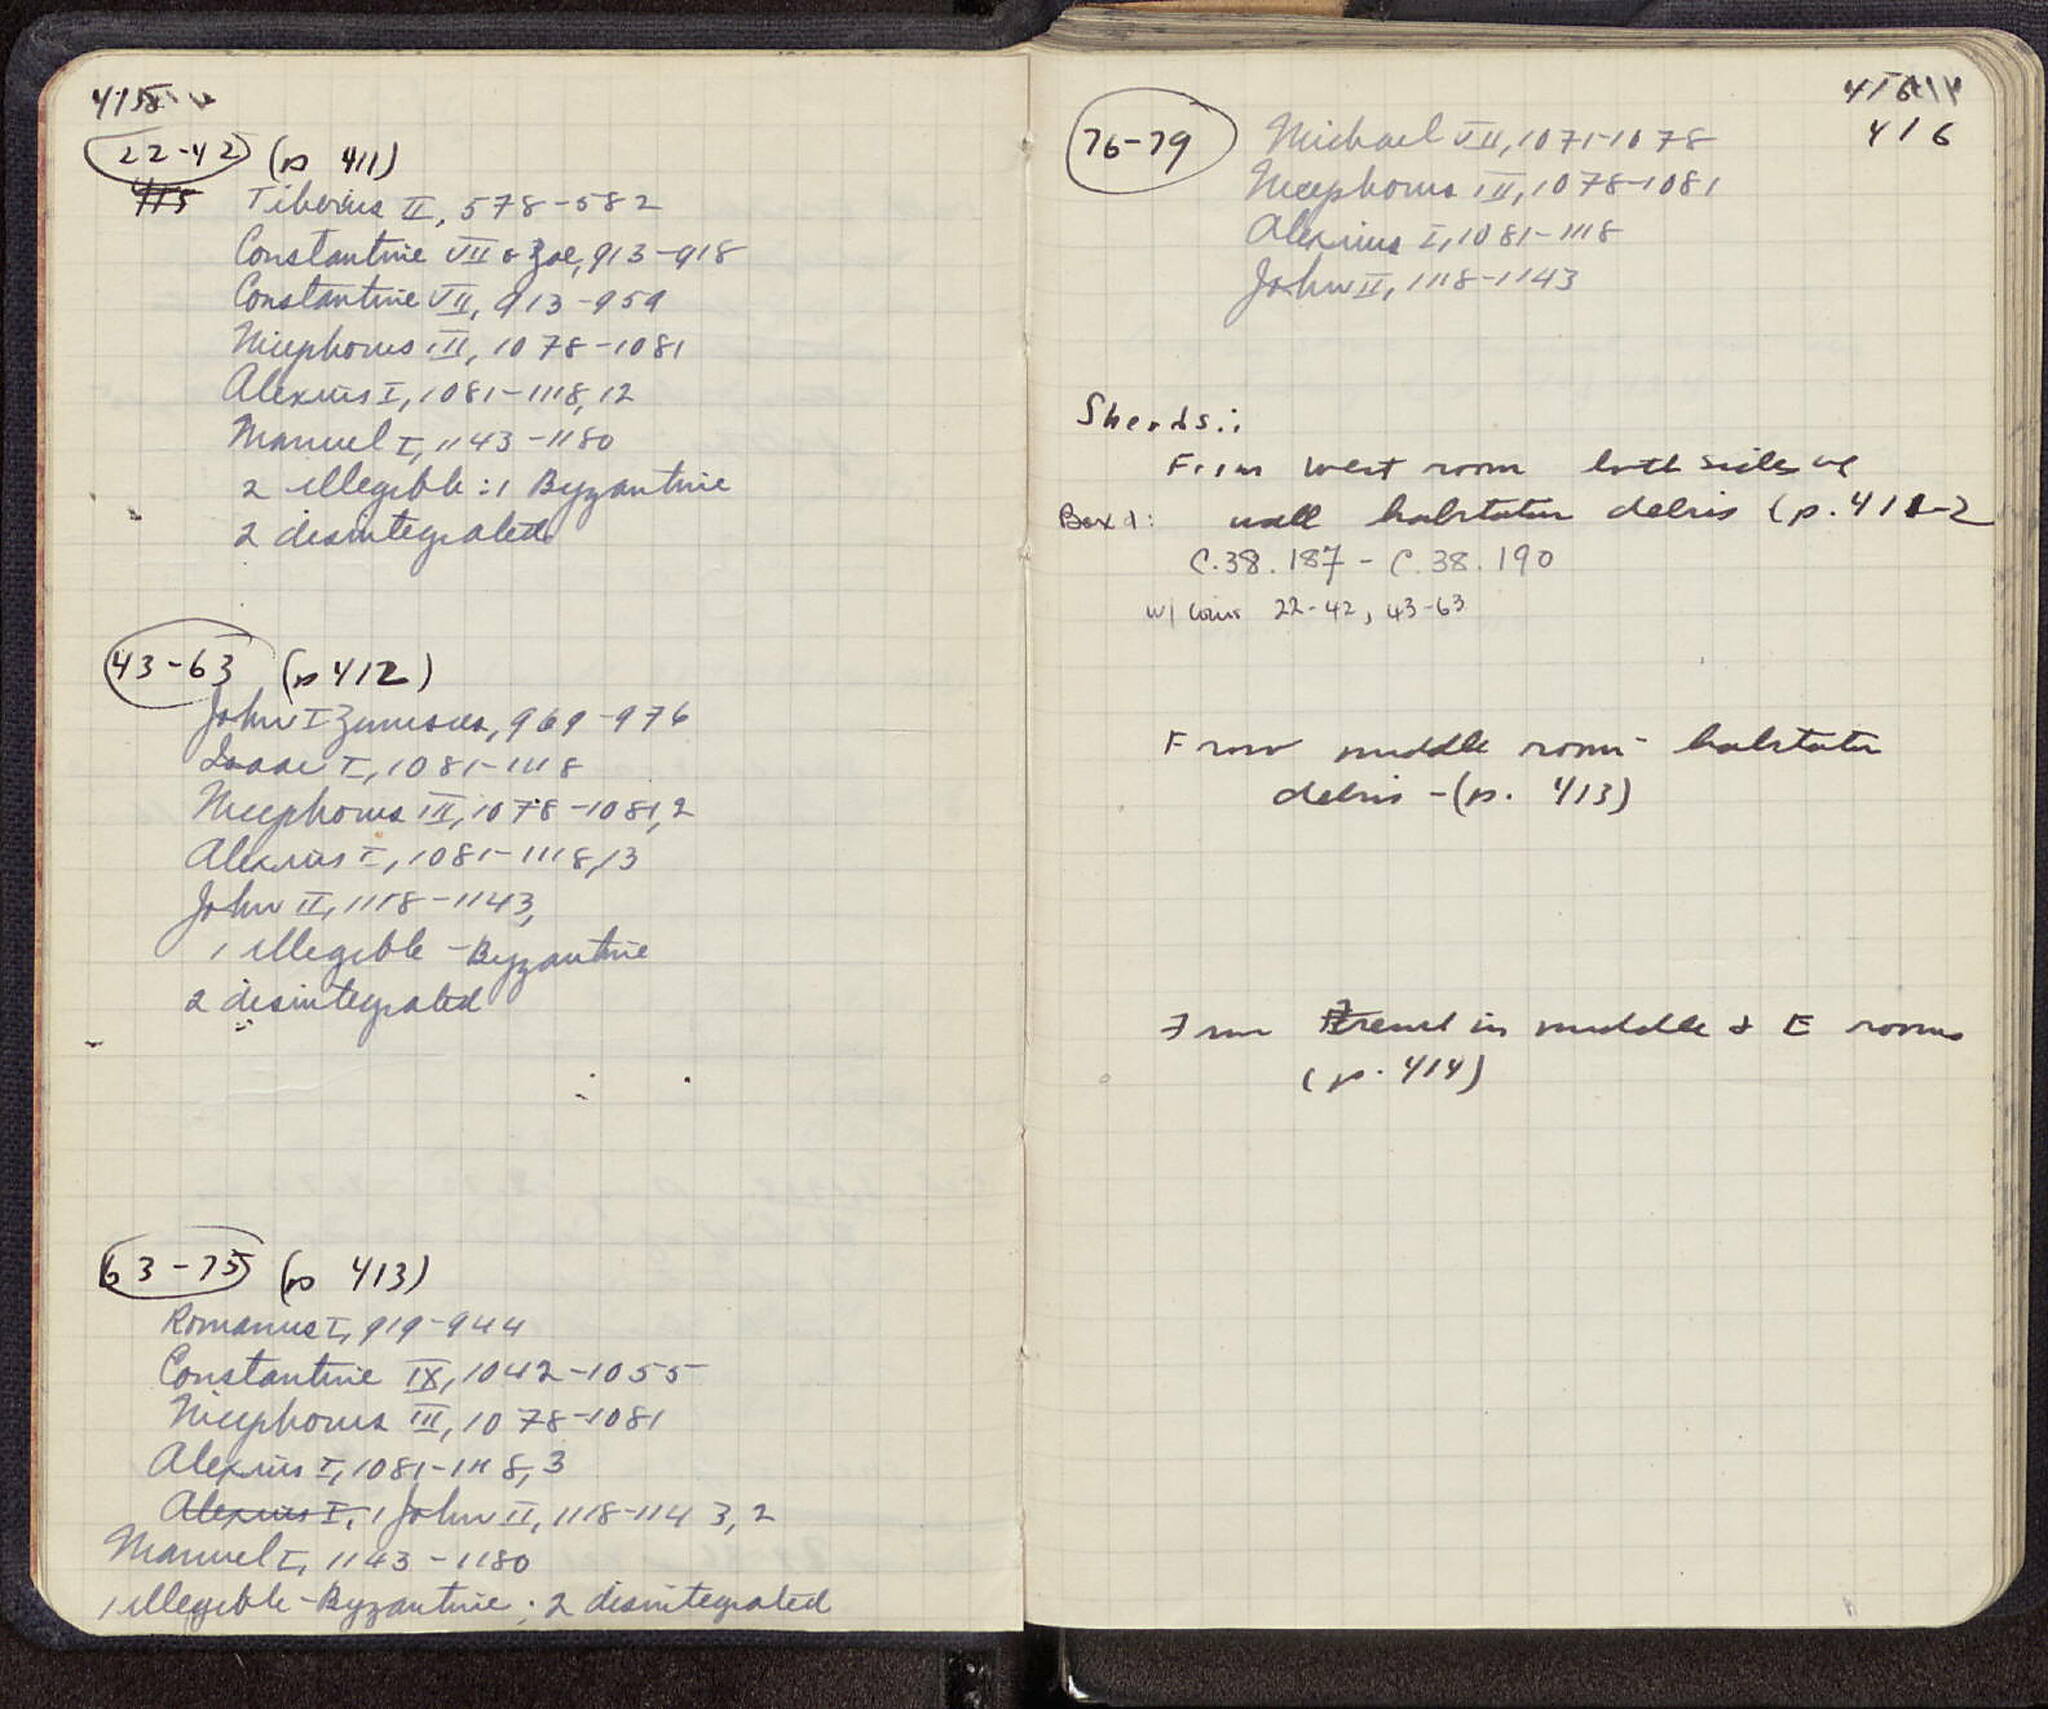 415
22-42 (p 411)
415 Tiberius II, 578-582
Constantine VII & Zoe, 913-918
Constantine VII, 913-959
Nicephorus III, 1078-1081
Alexius I, 1081-1118, 12
Manuel I, 1143-1180
2 illegible: 1 Byzantine
2 disintegrated
43-63 (p 412)
John I Zimisces, 969-976
Isaac I, 1081-1118
Nicephorus III, 1078-1081, 2
Alexius I, 1081-1118, 13
John II, 1118-1143,
1 illegible - Byzantine
2 disintegrated
63-75 (p 413)
Romanus I, 919-944
Constantine IX, 1042-1055
Nicephorus III, 1078-1081
Alexius I, 1081-1118, 3
Alexius I, 1 John II, 1118-1143, 2
Manuel I, 1143-1180
1 illegible - Byzantine; 2 disintegrated
416
416
76-79 Michael VII, 1071-1078
Nicephorus III, 1078-1081
Alexius I, 1081-1118
John II, 1118-1143
Sherds:
From west room both sides of
Box 1: wall habitation debris (p. 411-2
C.38.187 - C.38.190
w/ coins 22-42, 43-63
From middle room - habitation
debris - (p. 413)
From trench in middle & E rooms
(p. 414)